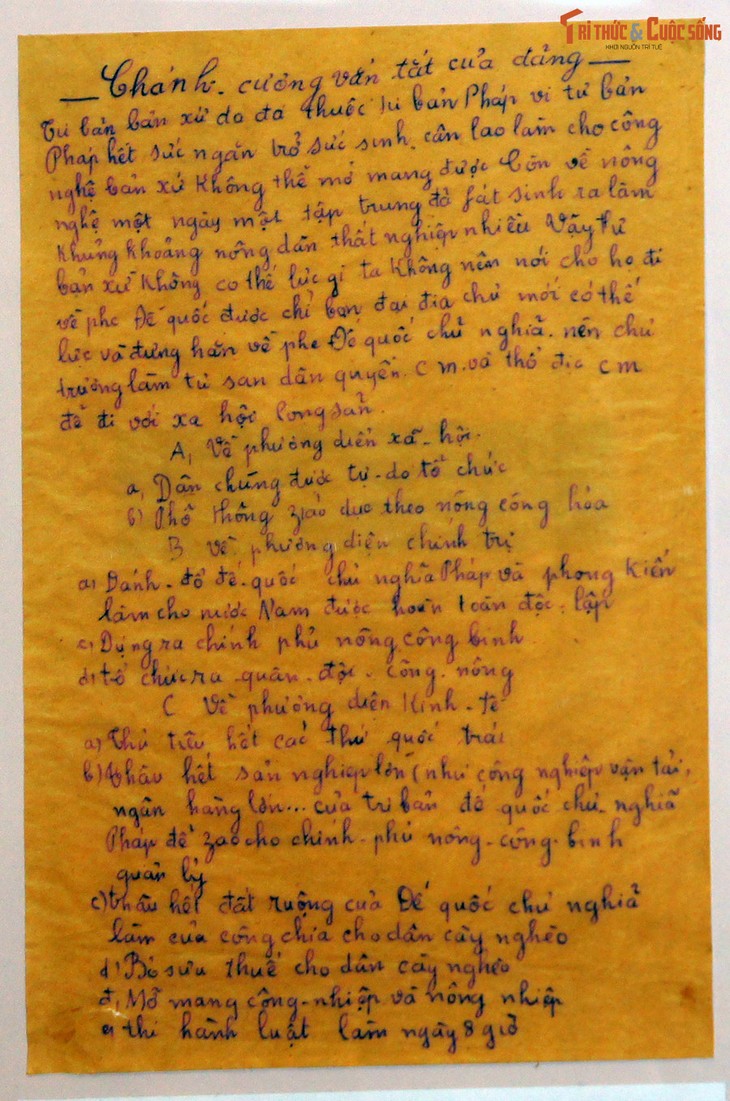 TRI THỨC & CUỘC SỐNG
KHƠI NGUỒN TRI THỨC
— Chánh-cương vắn tắt của đảng —
Tư bản bản xứ do đã thuộc tư bản Pháp vì tư bản
Pháp hết sức ngăn trở sức sinh, cần lao làm cho công
nghệ bản xứ không thể mở mang được Còn về nông
nghệ một ngày một tập trung đã fát sinh ra lắm
khủng khoảng nông dân thất nghiệp nhiều Vậy tư
bản xứ không có thế lực gì ta không nên nói cho họ đi
về phe Đế quốc được chỉ bọn đại địa chủ mới có thế
lực và đứng hẳn về phe Đế quốc chủ nghĩa. nên chủ
trương làm tư sản dân quyền. C m. và thổ địa c m
để đi với xã hội cộng sản.
A, Về phương diện xã-hội.
a, Dân chúng được tự-do tổ chức
b) Phổ thông záo dục theo nông công hóa
B Về phương diện chính trị
a) Đánh-đổ đế-quốc chủ nghĩa Pháp và phong kiến
làm cho nước Nam được hoàn toàn độc-lập
c) Dựng ra chính phủ nông công binh
d) tổ chức ra quân-đội-công-nông
C Về phương diện Kinh-tế
a) Thủ tiêu hết các thứ quốc trái
b) thâu hết sản nghiệp lớn (như công nghiệp vận tải,
ngân hàng lớn... của tư bản đế quốc chủ-nghĩa
Pháp để zao cho chính-phủ nông-công-binh
quản lý
c) thâu hết đất ruộng của Đế quốc chủ nghĩa
làm của công chia cho dân cày nghèo
d) Bỏ sưu thuế cho dân cày nghèo
đ, Mở mang công-nhiệp và nông nhiệp
e) thi hành luật làm ngày 8 giờ